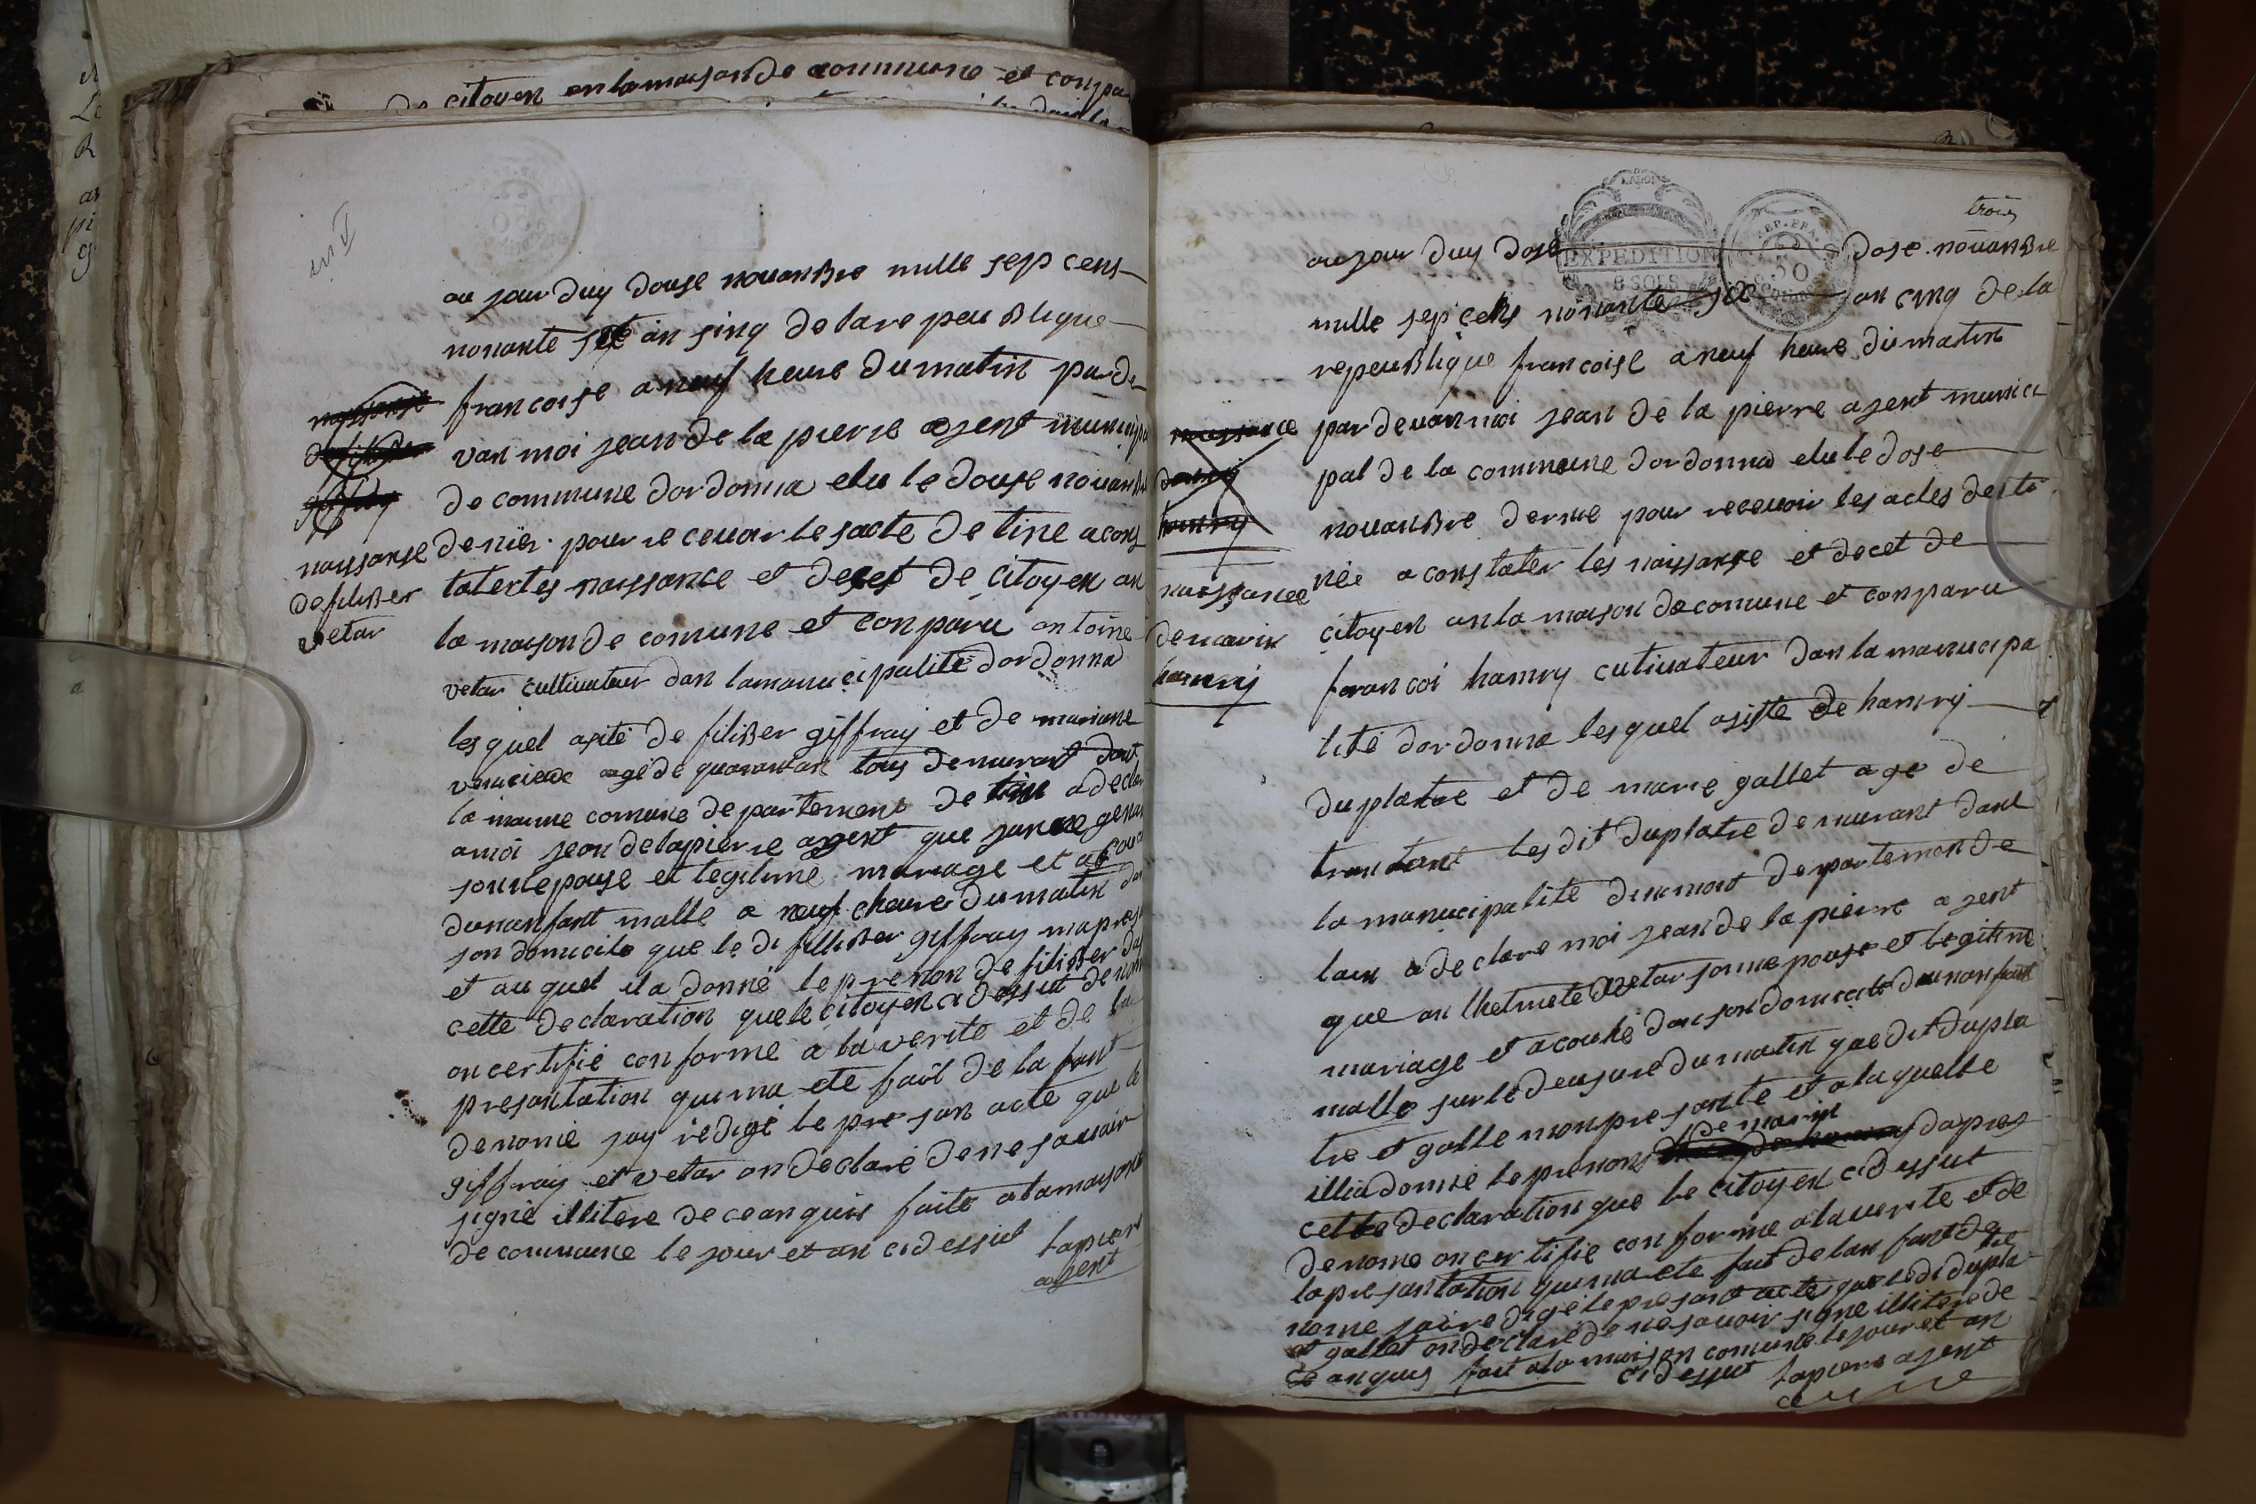 de citoyen en la maison de commune et conpa
au jour duy douse nouanbre mille sep cens
nonante sis an sinq de la repeublique
francoise a neuf heure du matin par de
van moi jean de la pierre agent municipa
de commune dordonna elu le douse nouanbr
denier pour re cevoir le sacte de tine a cons
tater les naissance et deces de citoyen an
la maison de comune et conparu antoine
vetar cultivateur dan lamanucipalité dordonna
naissanse
de filiber
vetar
lesquel asité de filiber giffray et de mariane
agé de quarantan tous demurant dant
la maime comune de partement de a decla
a moi jean delapierre agent que
son nepouse et legitime mariage et a cou
dunanfant malle a neuf cheure du matin dan
son domicile que le di filliber giffray ma pres
et au quel il a donné le prenon de filiber da
cette declaration que le citoyen a dessut denom
on certifié conforme a la verité et de la
presantation qui ma eté fait de la fant
denomé jay redigé le pre san acte que le
giffray et vetar on declaré de ne savair
signé illitere de ce anquis faite a la maison
de commune le jour et an cidessut
lapierr
agent
trois
EXPEDITION
8 SOLS
REP. FRA.
50
au jour duy dose dose nouanbre
mille sep cens nonante six an cinq de la
repeublique francoise a neuf heure du matin
par devan moi jean de la pierre agent munici
pal de la commune dordonna elu le dose
nouanbre dernie pour recevoir les actes desti
née a constater les naissanse et decet de
citoyen an la maison de comune et conparu
francoi hanrry cutivateur dan la manucipa
naissance
de marin
hanrry
lité dordonna lesquel asiste de hanrry
duplatre et de marie gallet age de
trantant lesdit duplatre demurant dant
la manucipalité departeman de
lain a declare moi jean de la pierre agent
que an vetar sonne pouse et legitime
mariage et a couhé dan son domicile dunanfant
malle sur le deusure du matin que dit dupla
tre et galle mon pre sante et a la quelle
illia donné le prenons de marin dapres
cette declaration que le citoyen cidessut
denome on certifié conforme a la verité et de
la pre santation qui ma eté fait de lan fant de
nomé jai redigé le presant acte que le di dupla
tre
et gallet on declaré de ne savoir signe illitere de
ce anquis fait a la maison comune le jour et an
cidessut lapiere agent